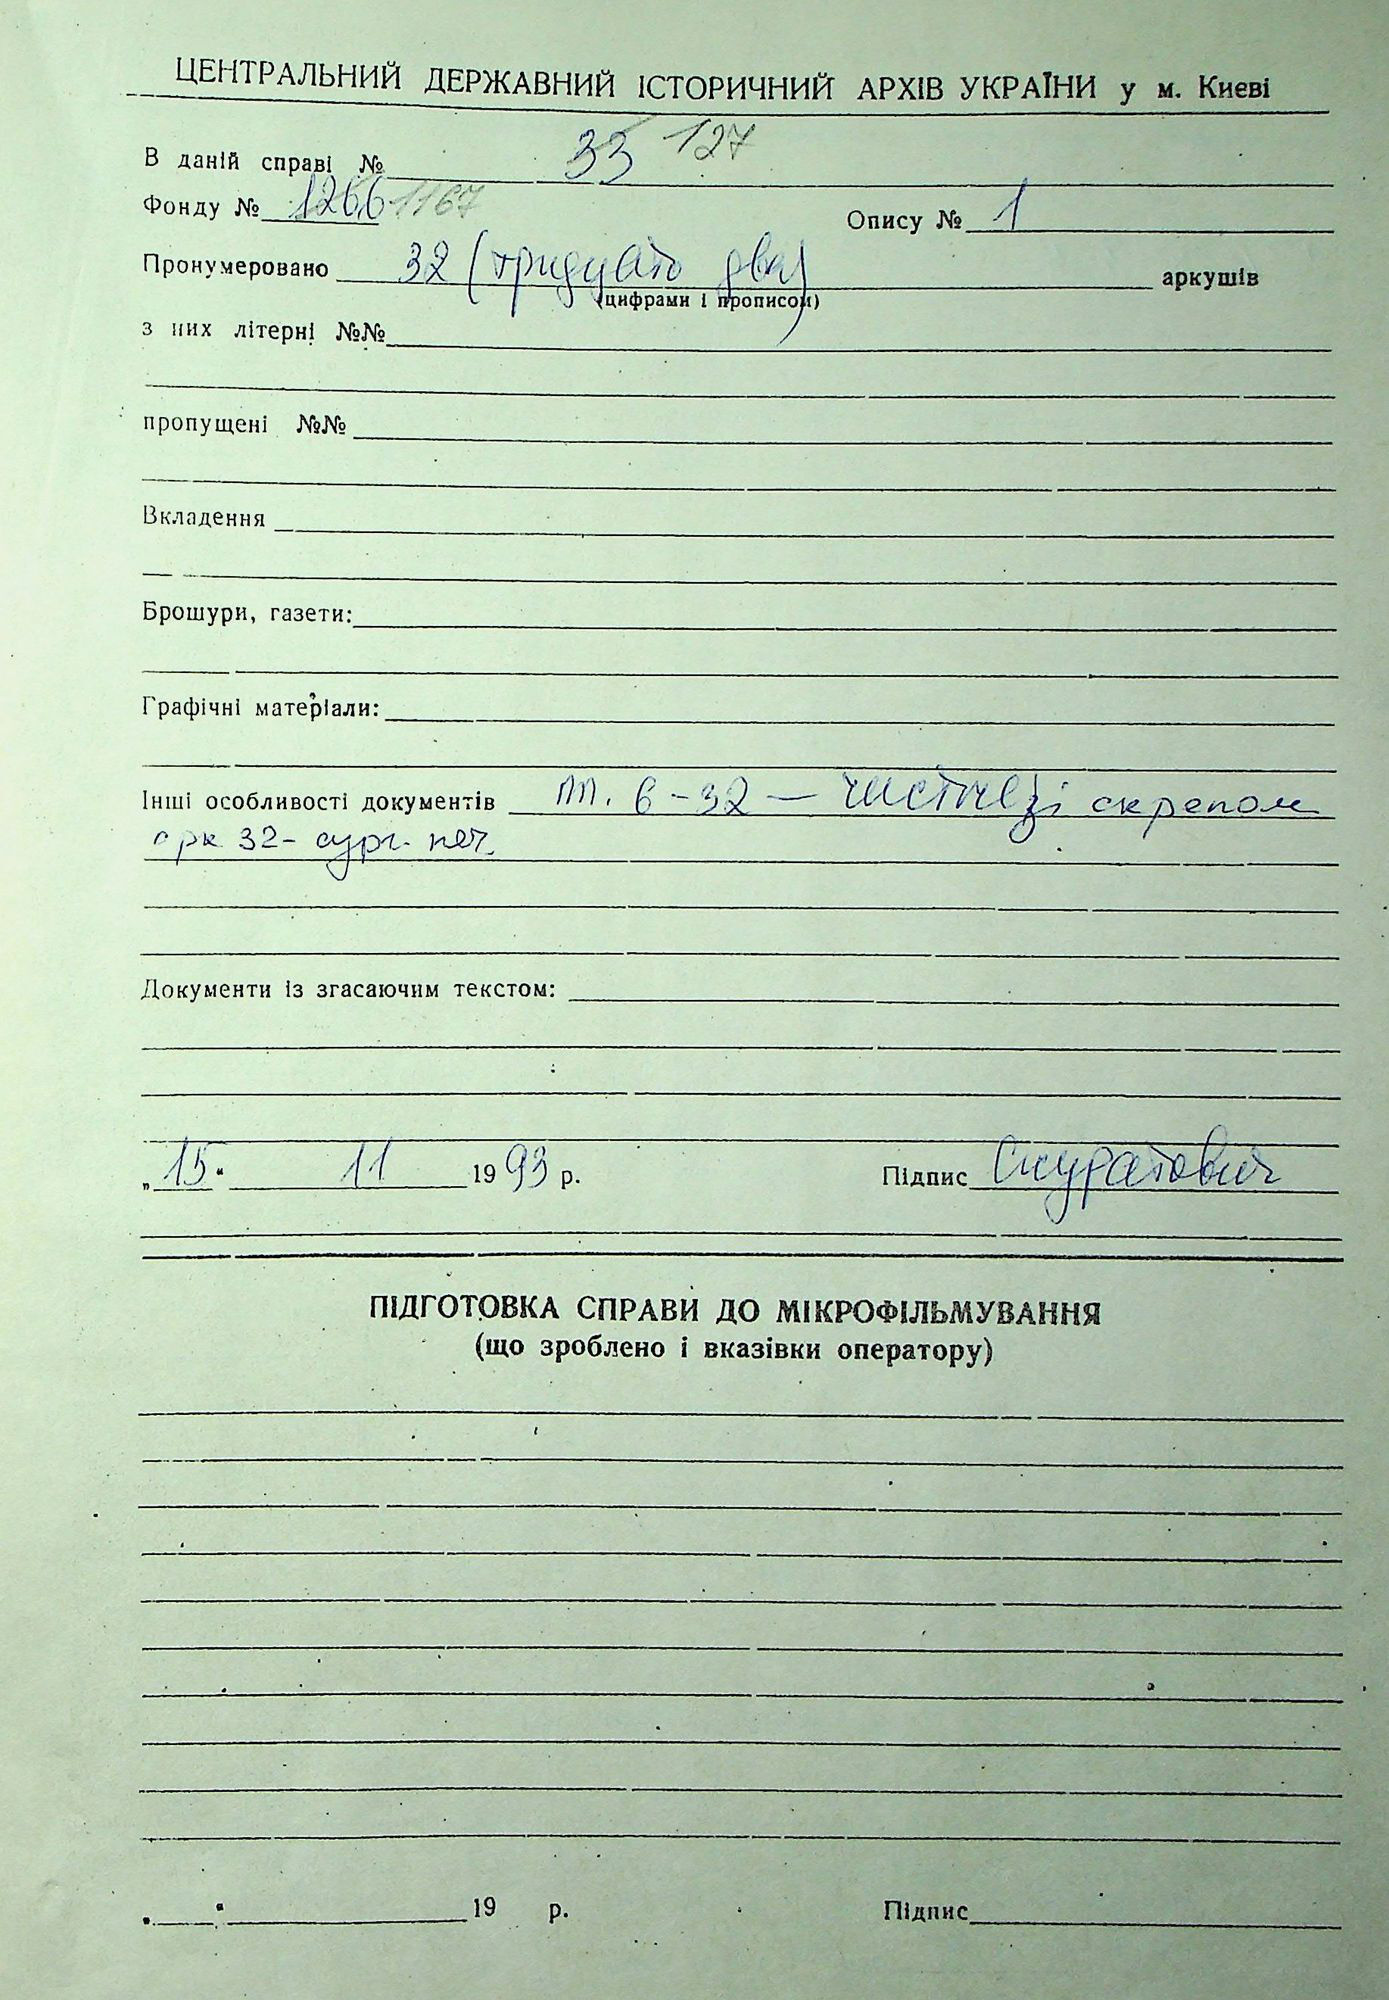 ЦЕНТРАЛЬНИЙ ДЕРЖАВНИЙ ІСТОРИЧНИЙ АРХІВ УКРАЇНИ у м. Києві
В даній справі № 33 127
Фонду № 1266 1167 Опису № 1
Пронумеровано 32 (тридцять два) аркушів
(цифрами і прописом)
з них літерні №№
пропущені №№
Вкладення
Брошури, газети:
Графічні матеріали:
Інші особливості документів 6-32 — чисті зі скрепом
арк 32- сург. печ.
Документи із згасаючим текстом:
„15" 11 1993 р. Підпис Скуратович
ПІДГОТОВКА СПРАВИ ДО МІКРОФІЛЬМУВАННЯ
(що зроблено і вказівки оператору)
19 р. Підпис